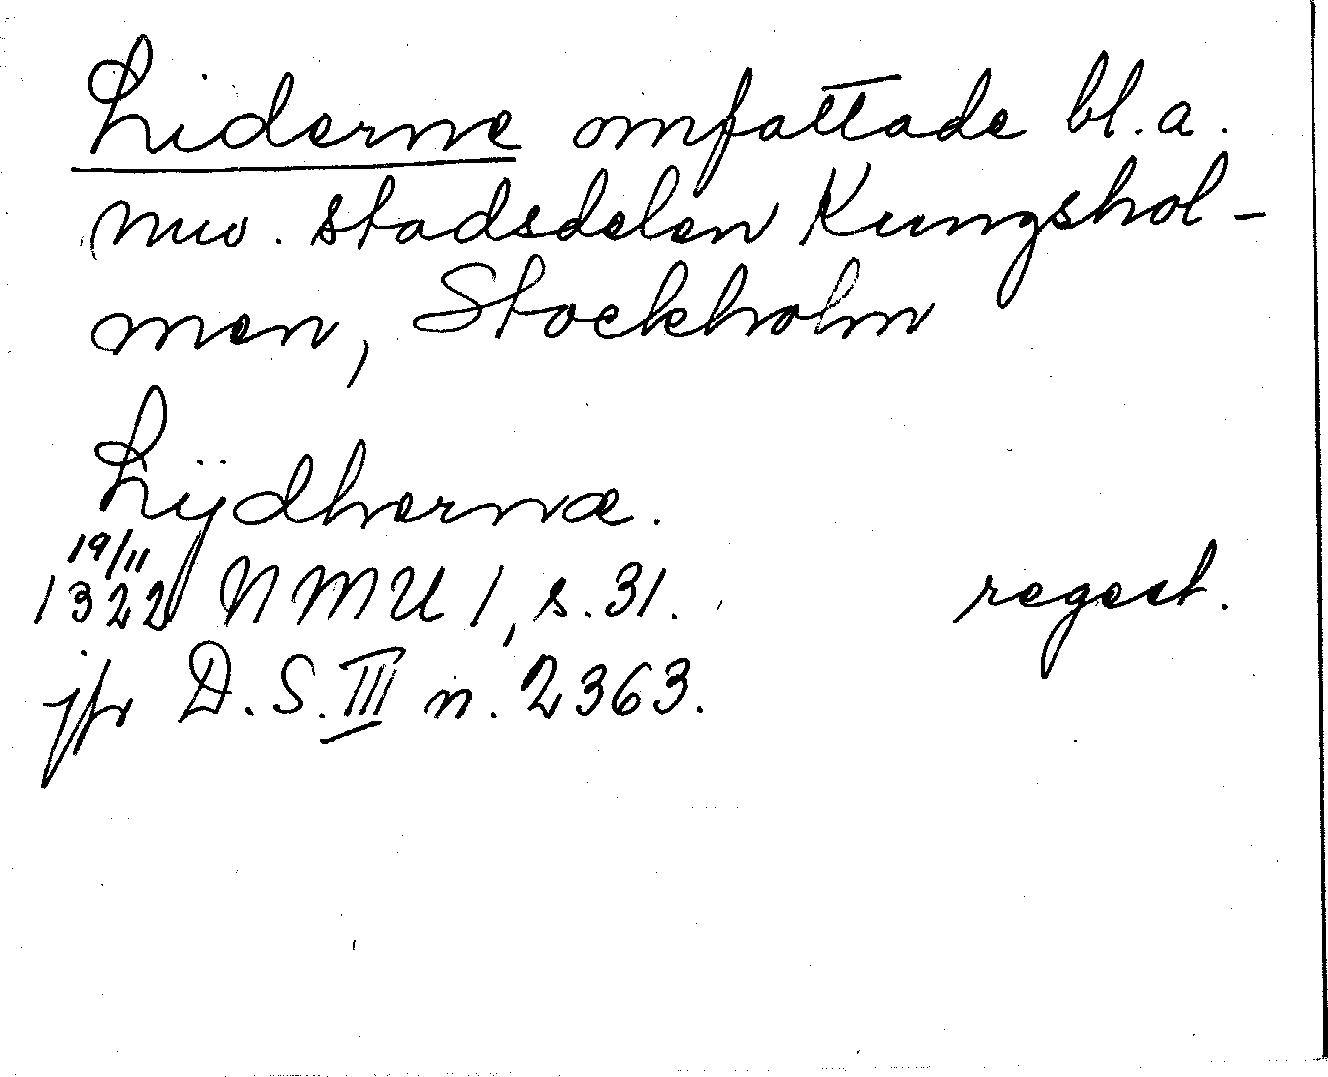 Liderne omfattade bl.a.
nuv. stadsdelen Kungshol-
men, Stockholm
Lÿdhernæ.
19/11
1322 NMU 1, s. 31. regest.
jfr D.S. III n. 2363.